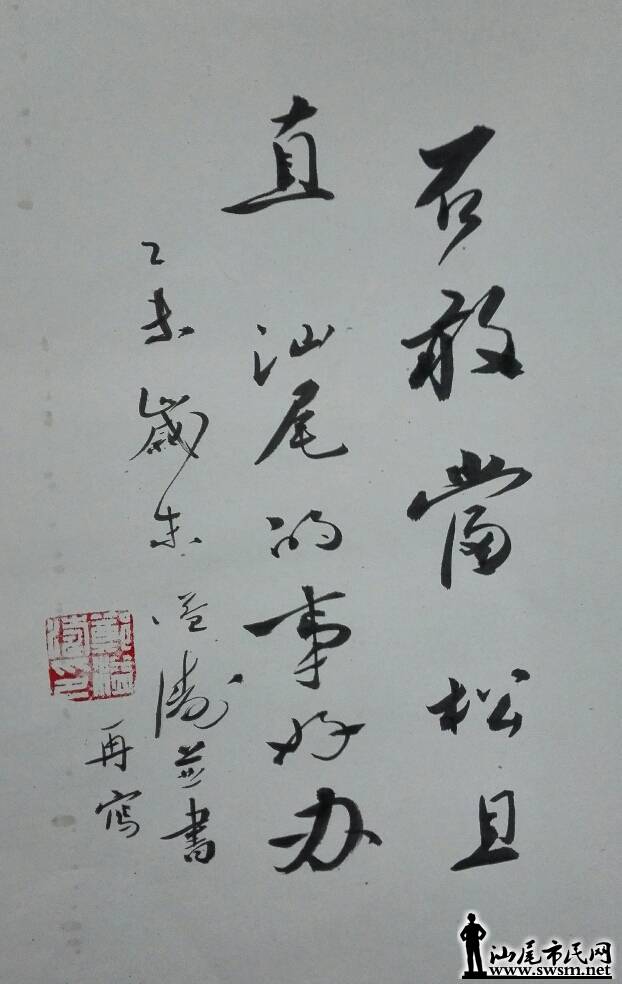 石敢當松且
直 汕尾的事好办
乙未歲末溢濤并書
再寫
汕尾市民网
www.swsm.net